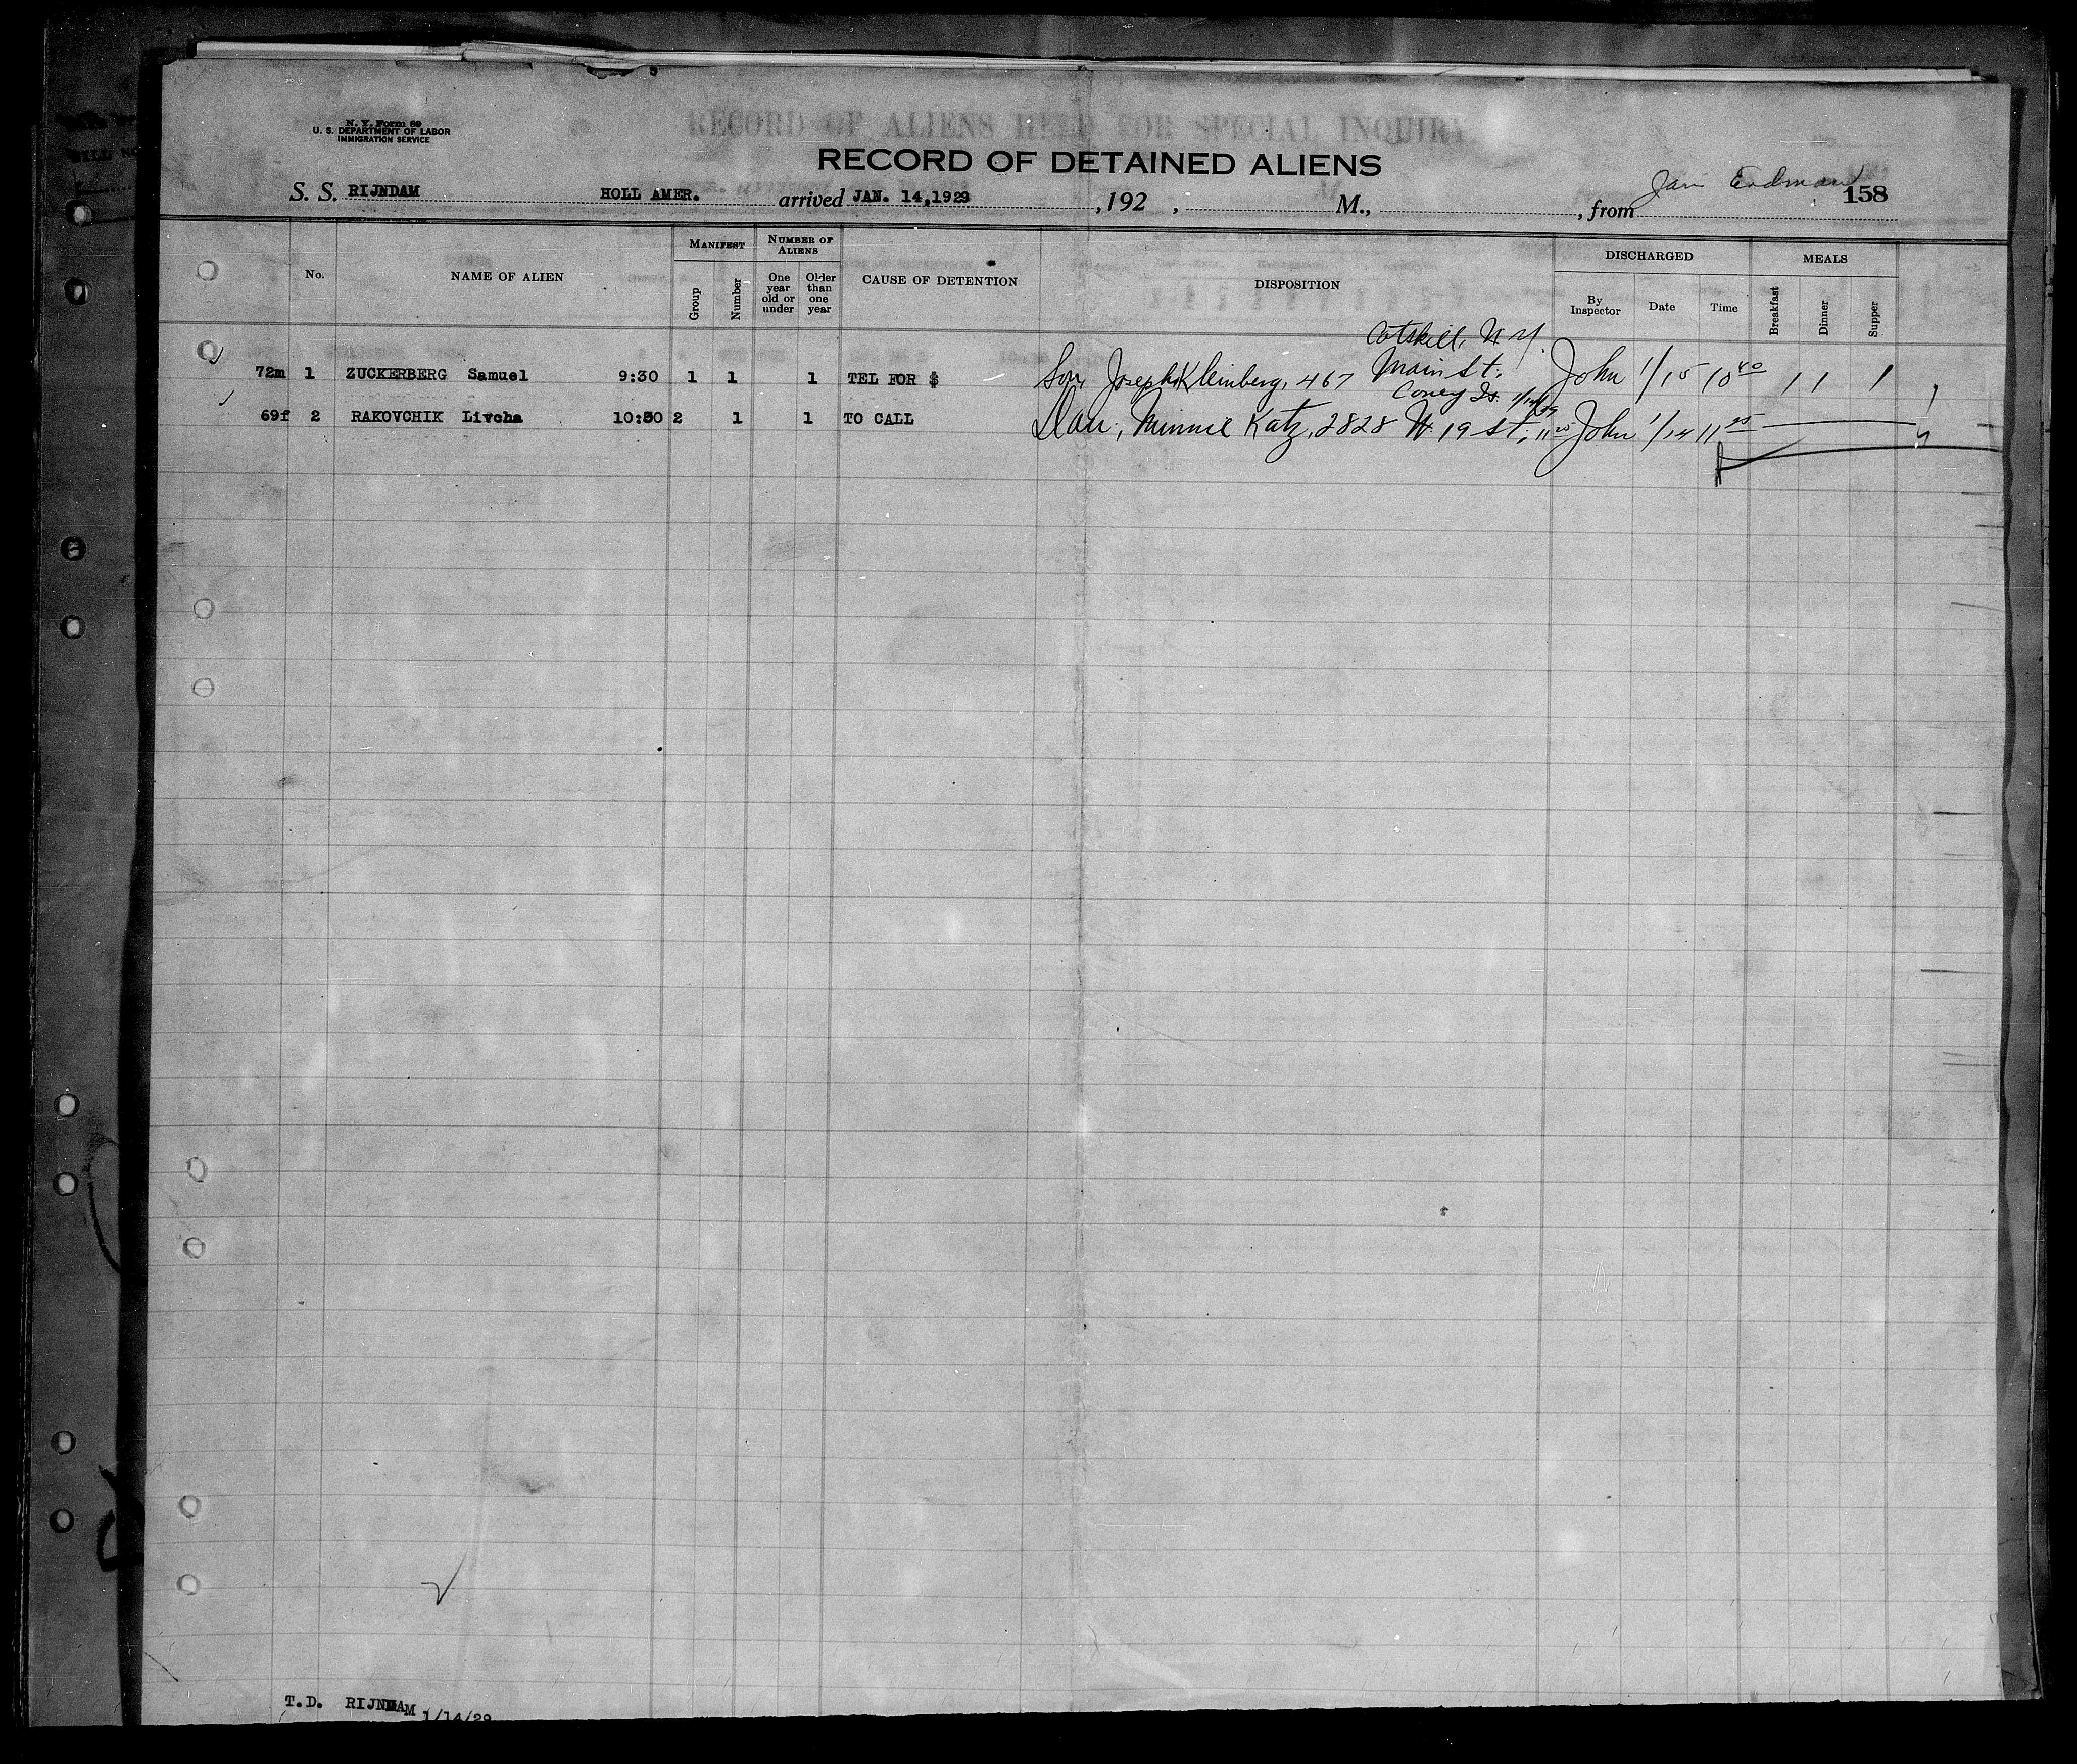 N. Y. Form 89
U. S. DEPARTMENT OF LABOR
IMMIGRATION SERVICE
RECORD OF ALIENS HELD FOR SPECIAL INQUIRY
RECORD OF DETAINED ALIENS
S. S. RIJNDAM HOLL AMER. arrived JAN. 14,1929 , 192 , M., , from 158
No. NAME OF ALIEN MANIFEST Group Number NUMBER OF ALIENS One year old or under Older than one year CAUSE OF DETENTION DISPOSITION DISCHARGED By Inspector Date Time MEALS Breakfast Dinner Supper
Catskill, N.Y.
72m 1 ZUCKERBERG Samuel 9:30 1 1 1 TEL FOR $ Son, Joseph Kleinberg, 467 Main St. John 1/15 10 40 1 1 1 1
Coney Is. 1/14/29
69f 2 RAKOVCHIK Livcha 10:00 2 1 1 TO CALL Dau, Minnie Katz, 2828 W. 19 St, 11 25 John 1/14 11 25
T.D. RIJNDAM 1/14/29